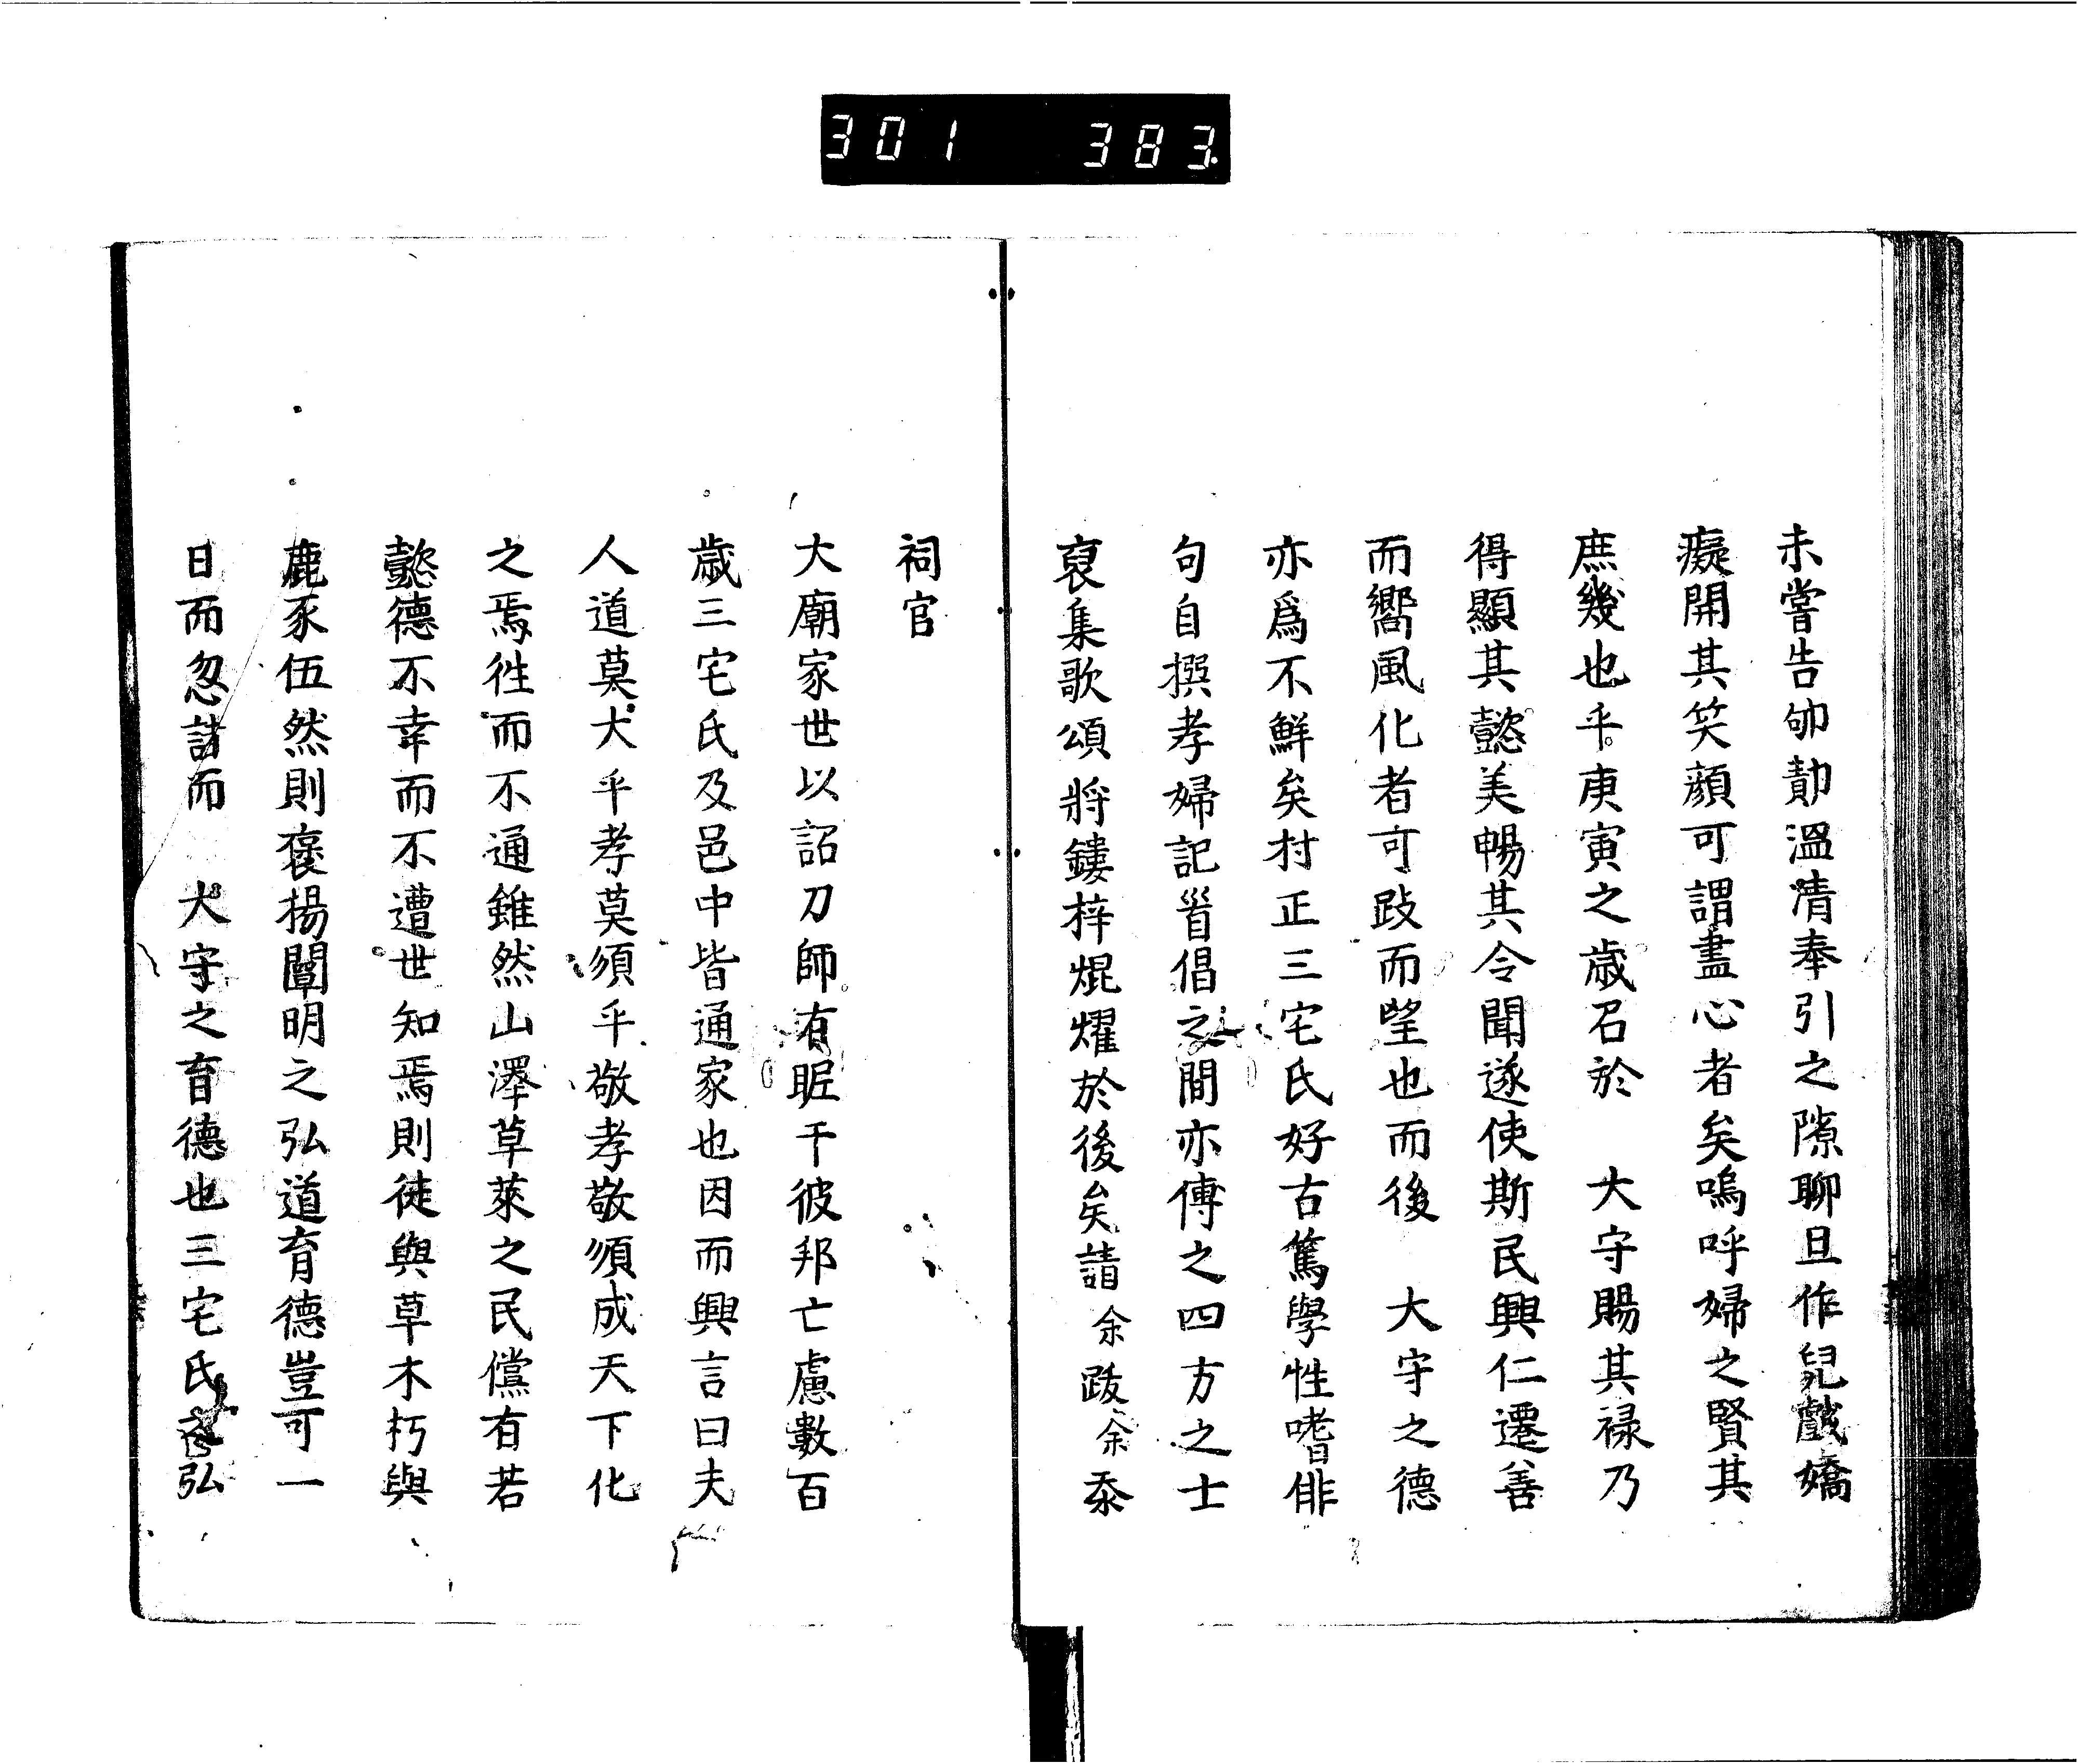 301 383.
未嘗告劬勣溫凊奉引之隙聊且作兒戲嬌
癡開其笑顔可謂盡心者矣嗚呼婦之賢其
庶幾也乎庚寅之歳召於 大守賜其禄乃
得顯其懿美暢其令聞遂使斯民興仁遷善
而嚮風化者可跂而望也而後 大守之德
亦爲不鮮矣村正三宅氏好古篤學性嗜俳
句自撰孝婦記首倡之間亦傳之四方之士
裒集歌頌將鏤梓焜燿於後矣請余跋余忝
祠官
大廟家世以詔刀師有昵干彼邦亡慮數百
歳三宅氏及邑中皆通家也因而興言曰夫
人道莫大乎孝莫須乎敬孝敬須成天下化
之焉徃而不通雖然山澤草萊之民儻有若
懿德不幸而不遭世知焉則徒與草木朽與
鹿豕伍然則褒揚闡明之弘道育德豈可一
日而忽諸而 大守之育德也三宅氏之弘